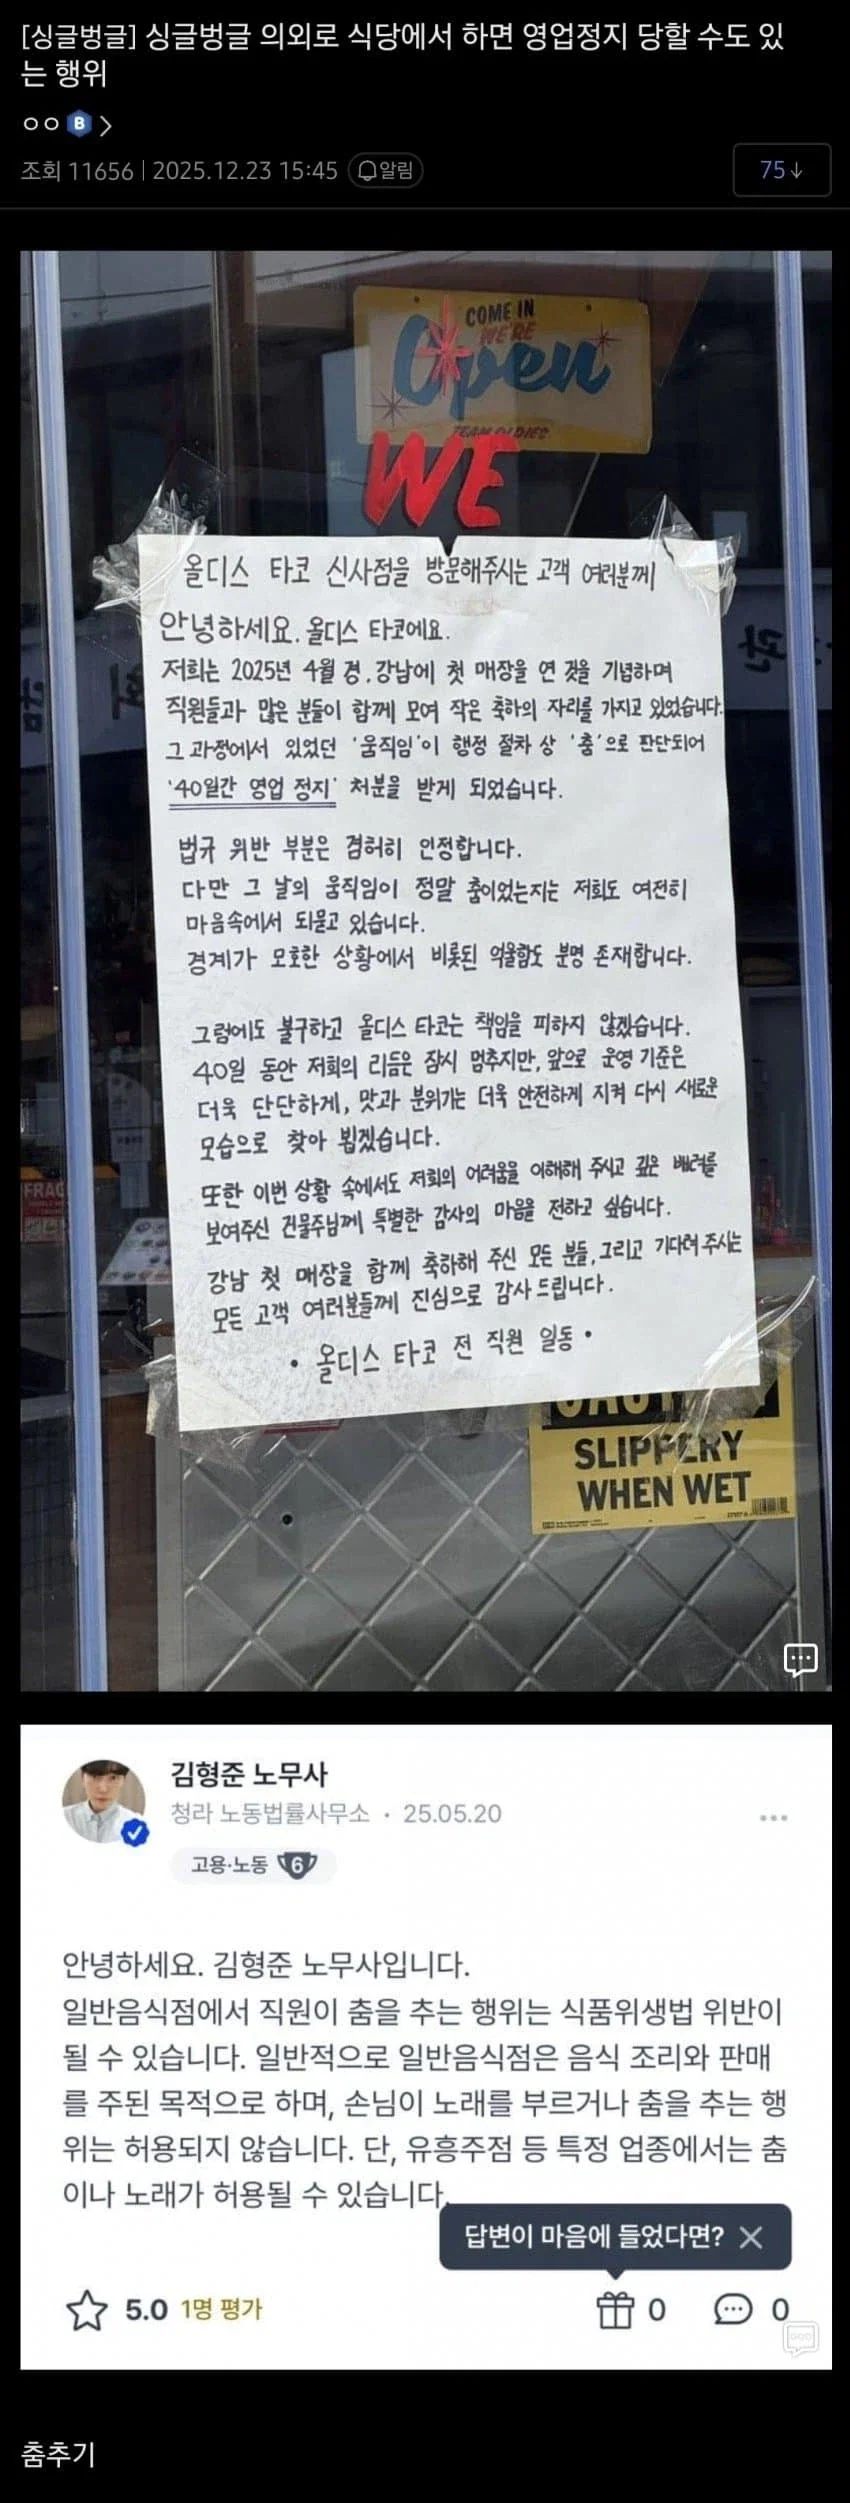 [싱글벙글] 싱글벙글 의외로 식당에서 하면 영업정지 당할 수도 있
는 행위
ㅇㅇ B
조회 11656 | 2025.12.23 15:45 알림
75↓
COME IN
WE'RE
Open
TEAM OLDIES
WE
올디스 타코 신사점을 방문해주시는 고객 여러분께
안녕하세요. 올디스 타코에요.
저희는 2025년 4월 경, 강남에 첫 매장을 연 것을 기념하며
직원들과 많은 분들이 함께 모여 작은 축하의 자리를 가지고 있었습니다.
그 과정에서 있었던 '움직임'이 행정 절차 상 '춤'으로 판단되어
'40일간 영업 정지' 처분을 받게 되었습니다.
법규 위반 부분은 겸허히 인정합니다.
다만 그 날의 움직임이 정말 춤이었는지는 저희도 여전히
마음속에서 되묻고 있습니다.
경계가 모호한 상황에서 비롯된 억울함도 분명 존재합니다.
그럼에도 불구하고 올디스 타코는 책임을 피하지 않겠습니다.
40일 동안 저희의 리듬은 잠시 멈추지만, 앞으로 운영 기준은
더욱 단단하게, 맛과 분위기는 더욱 안전하게 지켜 다시 새로운
모습으로 찾아 뵙겠습니다.
또한 이번 상황 속에서도 저희의 어려움을 이해해 주시고 깊은 배려를
보여주신 건물주님께 특별한 감사의 마음을 전하고 싶습니다.
강남 첫 매장을 함께 축하해 주신 모든 분들, 그리고 기다려 주시는
모든 고객 여러분들께 진심으로 감사 드립니다.
• 올디스 타코 전 직원 일동 •
SLIPPERY
WHEN WET
김형준 노무사
청라 노동법률사무소 · 25.05.20
고용·노동 6
안녕하세요. 김형준 노무사입니다.
일반음식점에서 직원이 춤을 추는 행위는 식품위생법 위반이
될 수 있습니다. 일반적으로 일반음식점은 음식 조리와 판매
를 주된 목적으로 하며, 손님이 노래를 부르거나 춤을 추는 행
위는 허용되지 않습니다. 단, 유흥주점 등 특정 업종에서는 춤
이나 노래가 허용될 수 있습니다.
답변이 마음에 들었다면? ×
5.0 1명 평가 0 0
춤추기